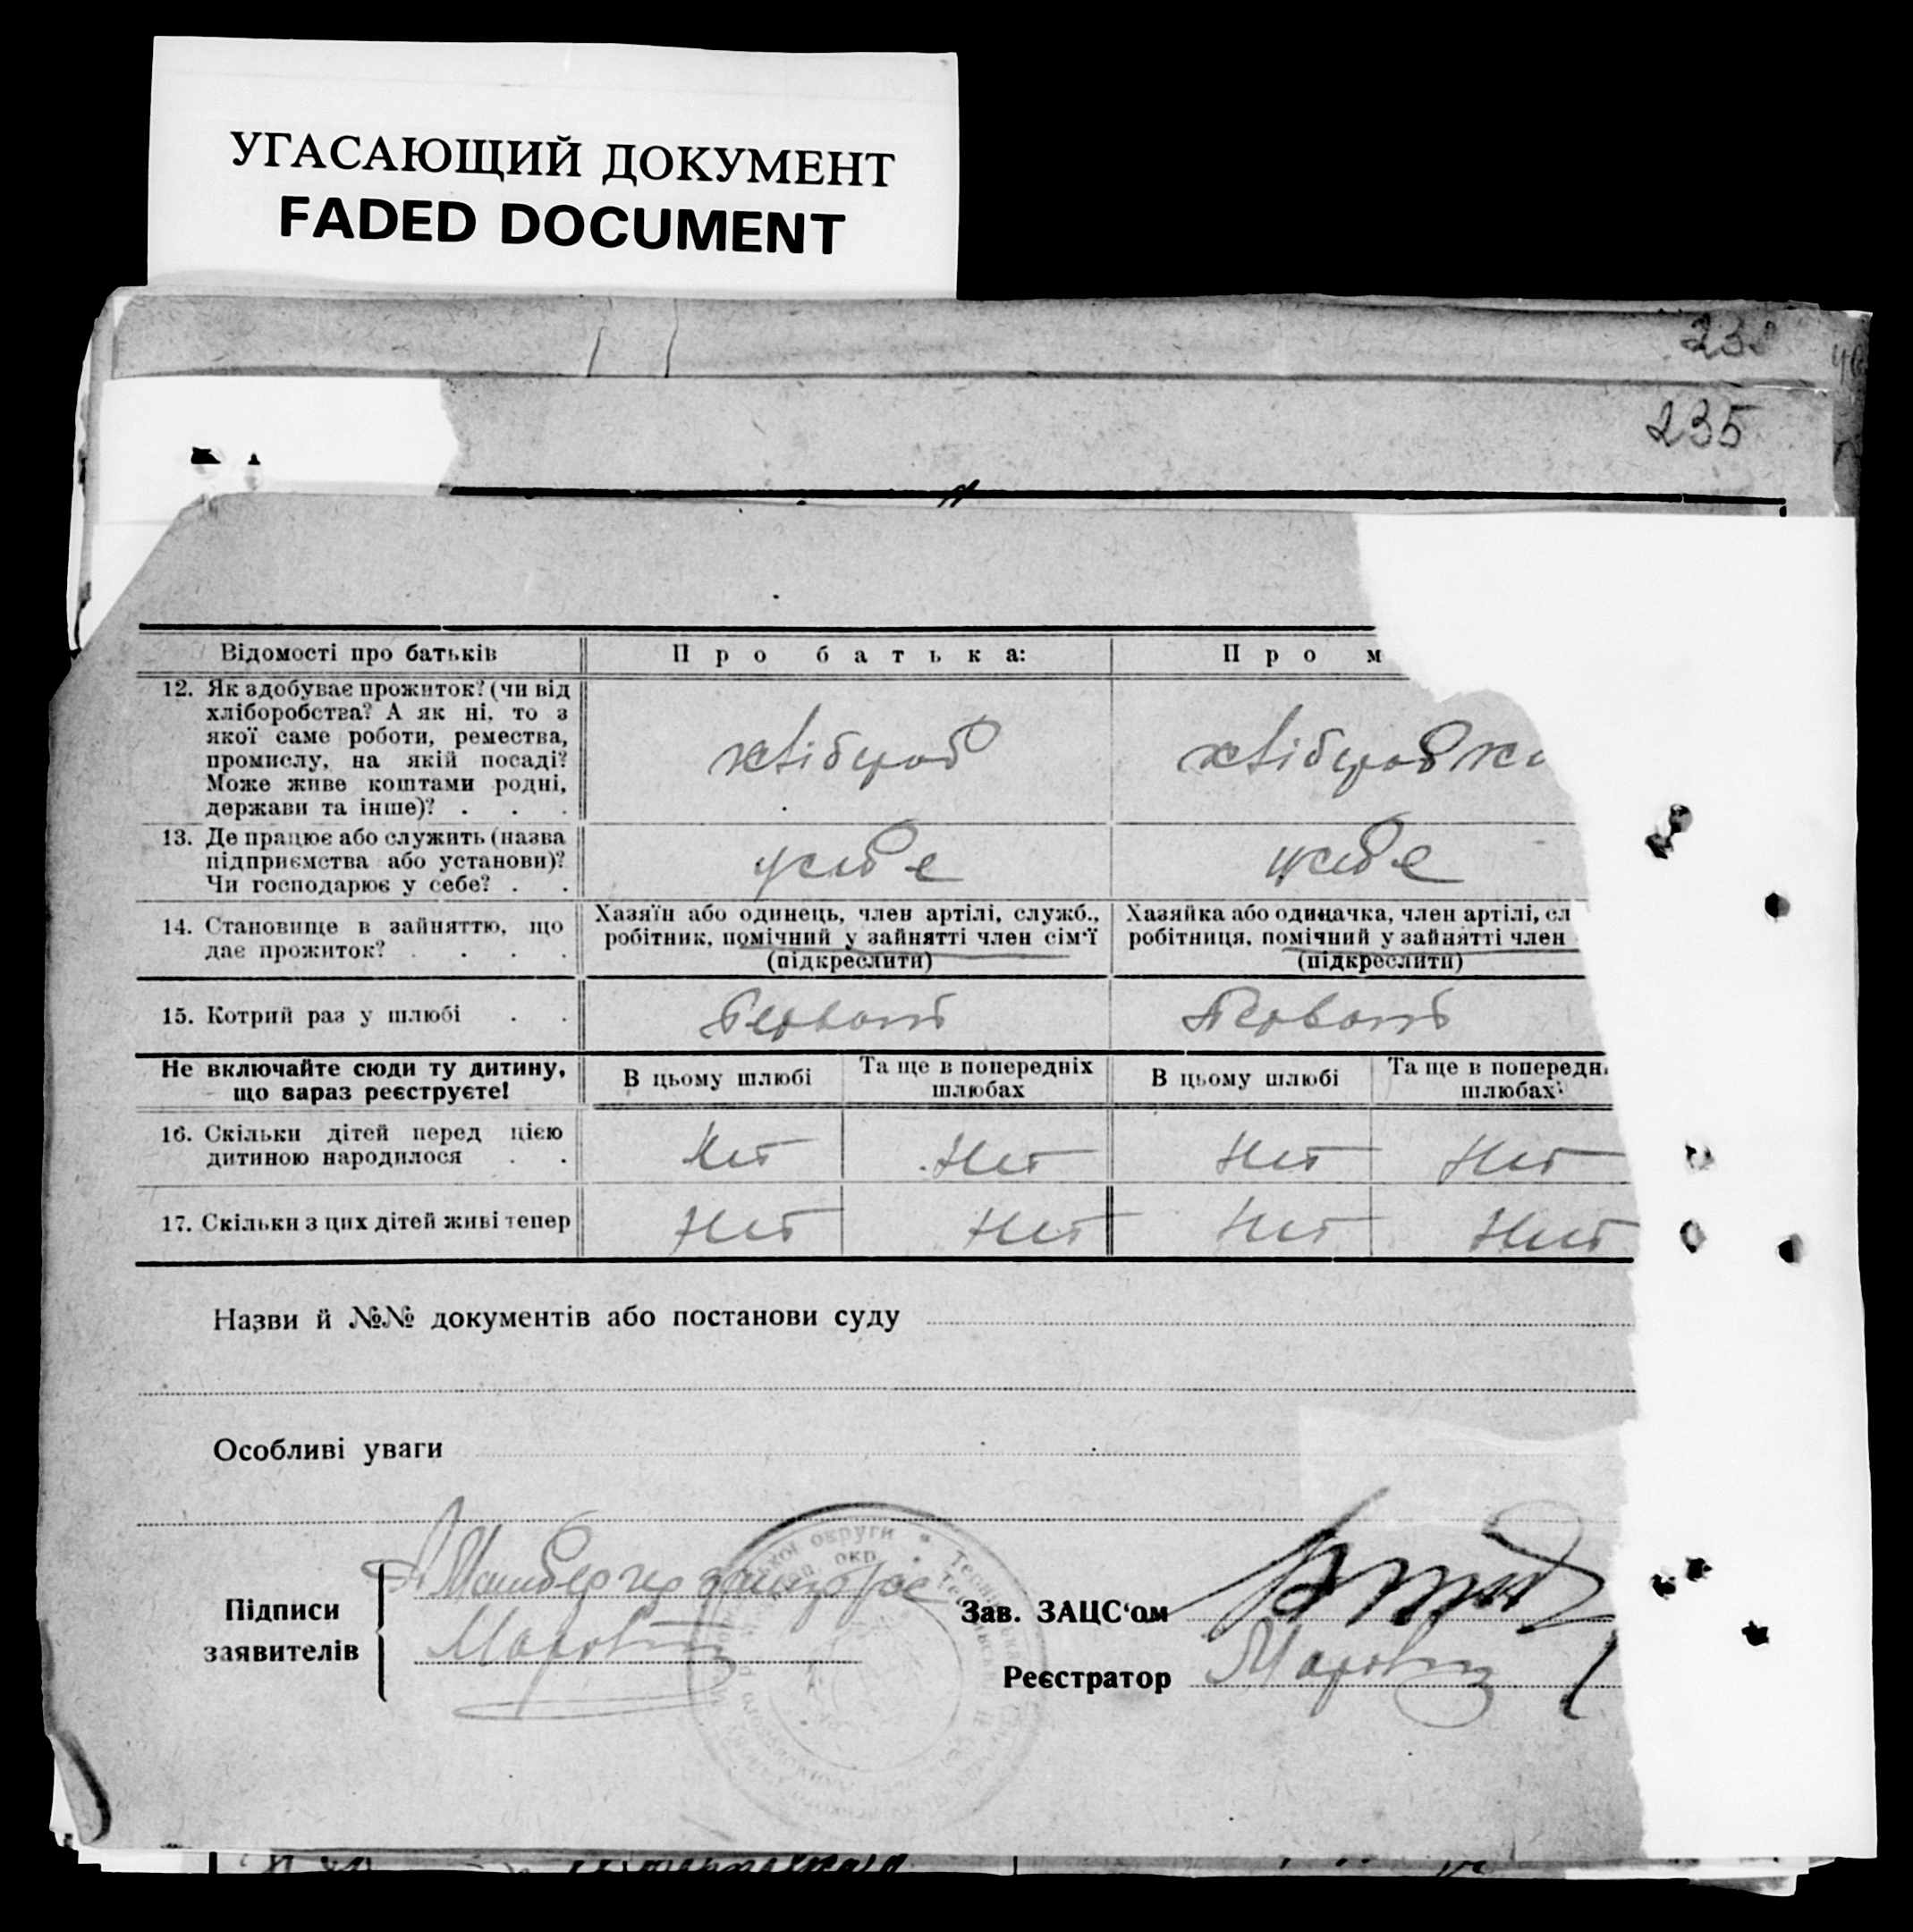 УГАСАЮЩИЙ ДОКУМЕНТ
FADED DOCUMENT
232
235
Відомості про батьків
Про батька:
Про м
12. Як здобуває прожиток? (чи від
хліборобства? А як ні, то з
якої саме роботи, ремества,
промислу, на якій посаді?
Може живе коштами родні,
держави та інше)? . . .
хлібороб
хліборобка
13. Де працює або служить (назва
підприємства або установи)?
Чи господарює у себе? . .
у себе
у себе
14. Становище в зайняттю, що
дає прожиток? . . . .
Хазяїн або одинець, член артілі, служб.,
робітник, помічний у зайнятті член сім'ї
(підкреслити)
Хазяйка або одиначка, член артілі, сл
робітниця, помічний у зайнятті член
(підкреслити)
15. Котрий раз у шлюбі . .
Первой
Первой
Не включайте сюди ту дитину,
що зараз реєструєте!
В цьому шлюбі
Та ще в попередніх
шлюбах
В цьому шлюбі
Та ще в попередн
шлюбах
16. Скільки дітей перед цією
дитиною народилося . .
Нет
Нет
Нет
Нет
17. Скільки з цих дітей живі тепер
Нет
Нет
Нет
Нет
Назви й №№ документів або постанови суду
Особливі уваги
Підписи
заявителів
Зав. ЗАЦС'ом
Реєстратор
округи